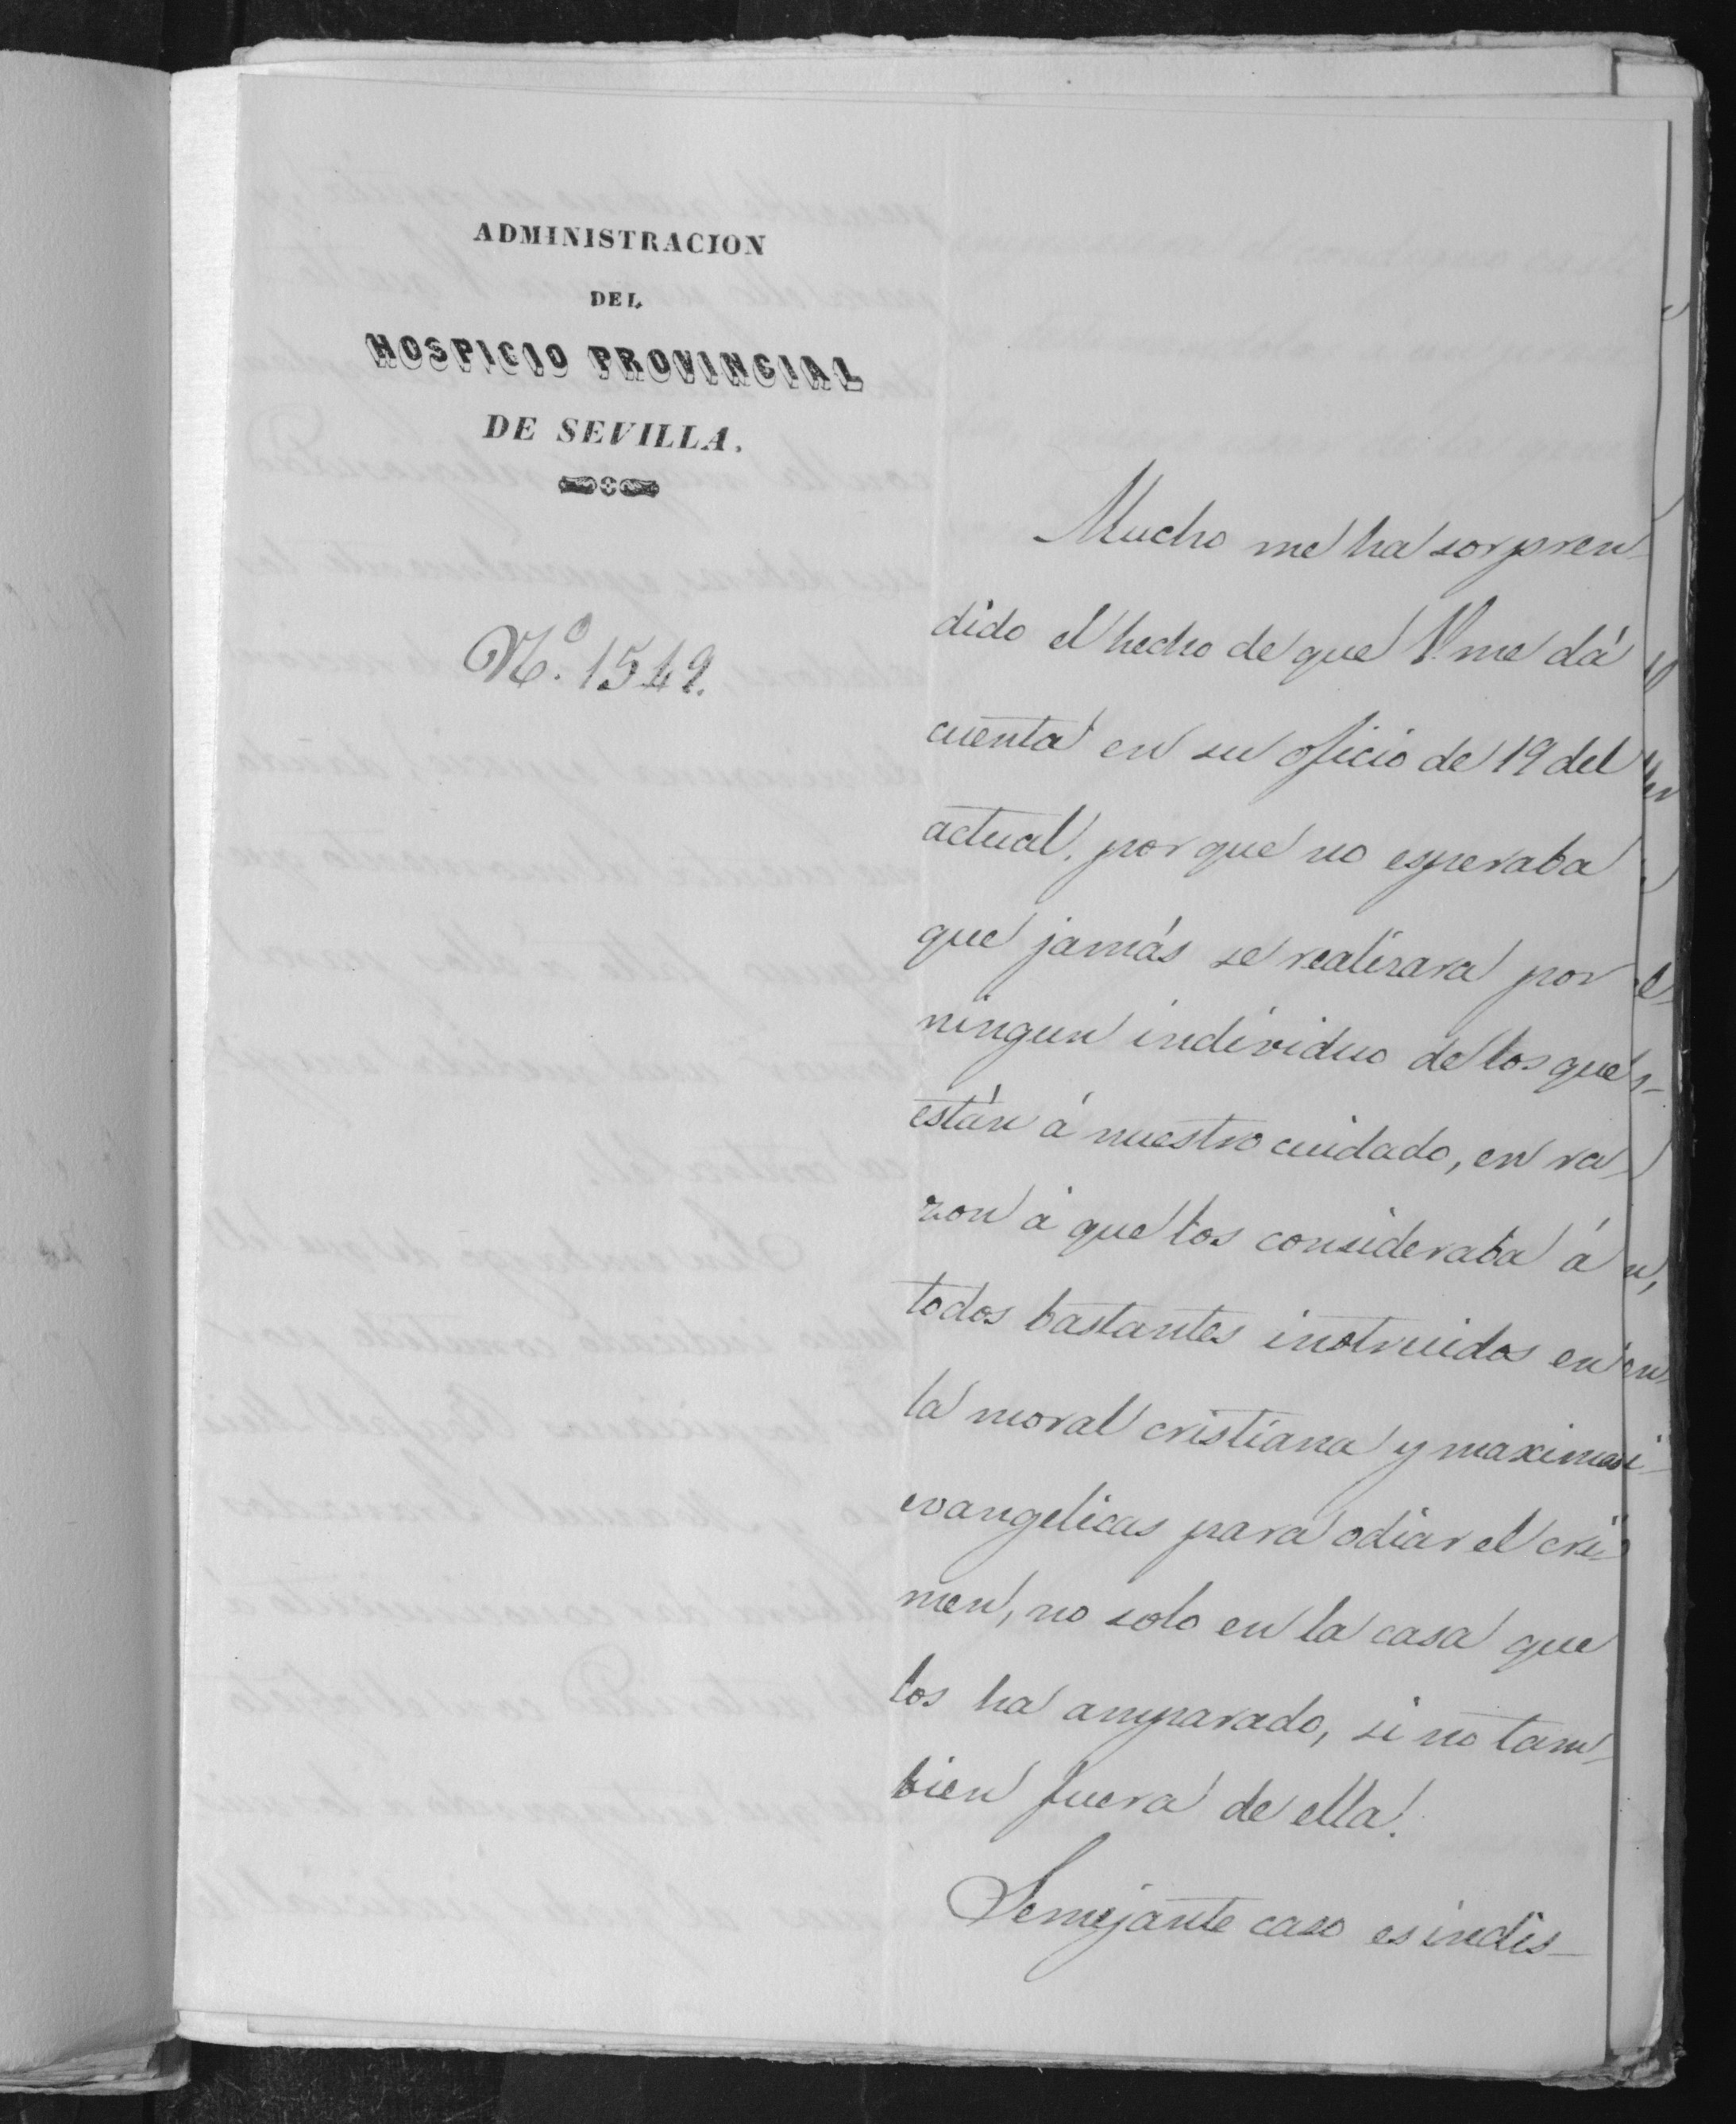 ADMINISTRACION
DEL
HOSPICIO PROVINCIAL
DE SEVILLA.
Nº. 1542.
Mucho me ha sorpren
dido el hecho de que V. me dá
cuenta en su oficio de 19 del
actual, porque no esperaba
que jamás se realizara por
ningun individuo de los que
están á nuestro cuidado, en ra
zon á que los consideraba á
todos bastantes instruidos en
la moral cristiana y maximas
evangelicas para odiar el cri
men, no solo en la casa que
los ha amparado, si no tam
bien fuera de ella.
Semejante caso es indis-